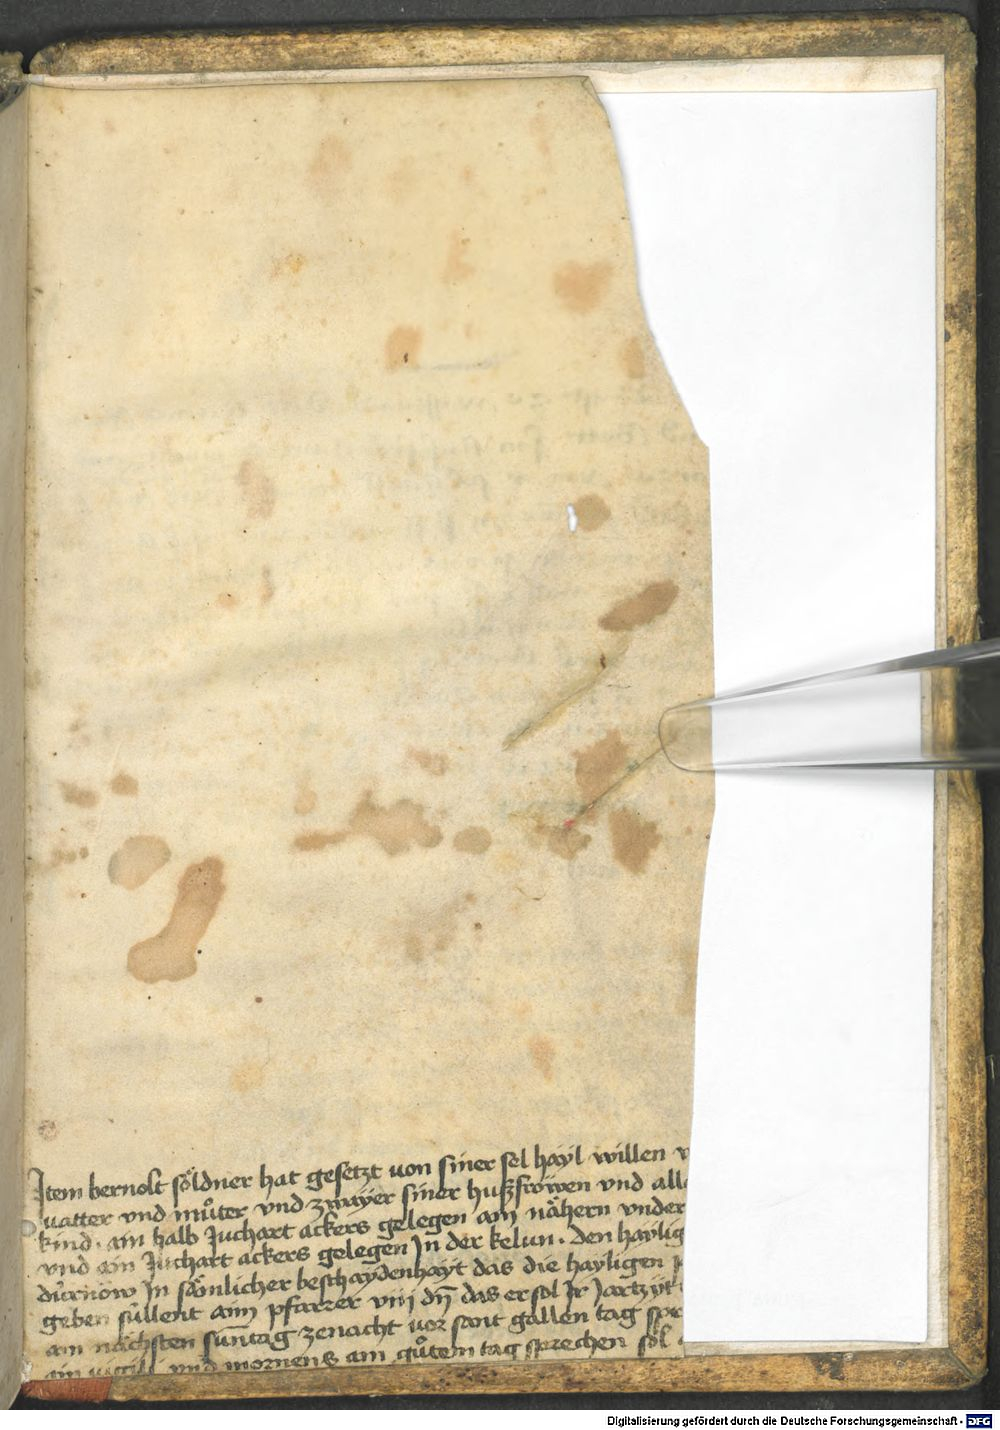 Item bernolt söldner hat gesetzt von siner sel hayl willen v
vatter vnd můter vnd zwayer siner hußfröwen vnd all
kind · ain halb Juchart ackers gelegen am nähern vnder
vnd ain Juchart ackers gelegen In der kelun · den haylig
dürnow In sämlicher beschaydenhayt das die hayligen
geben süllent aim pfarrer viij dn̄ das er sol Ir Jartzyt
am nächsten sun̄tag zenacht vor sant gallen tag spre
ain vigili vnd mornens am gůtem tag sprechen sol
Digitalisierung gefördert durch die Deutsche Forschungsgemeinschaft - DFG